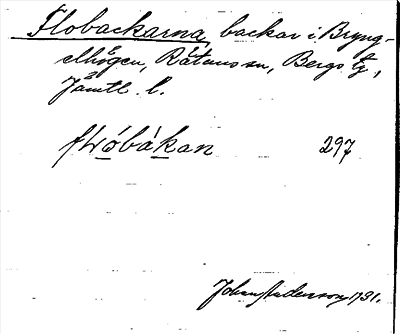 Flobackarna, backar i Bryng-
elhögen, Rätans sn, Bergs tg,
Jämtl. l.
flωóbákan 297
Johan Anderson 1931.